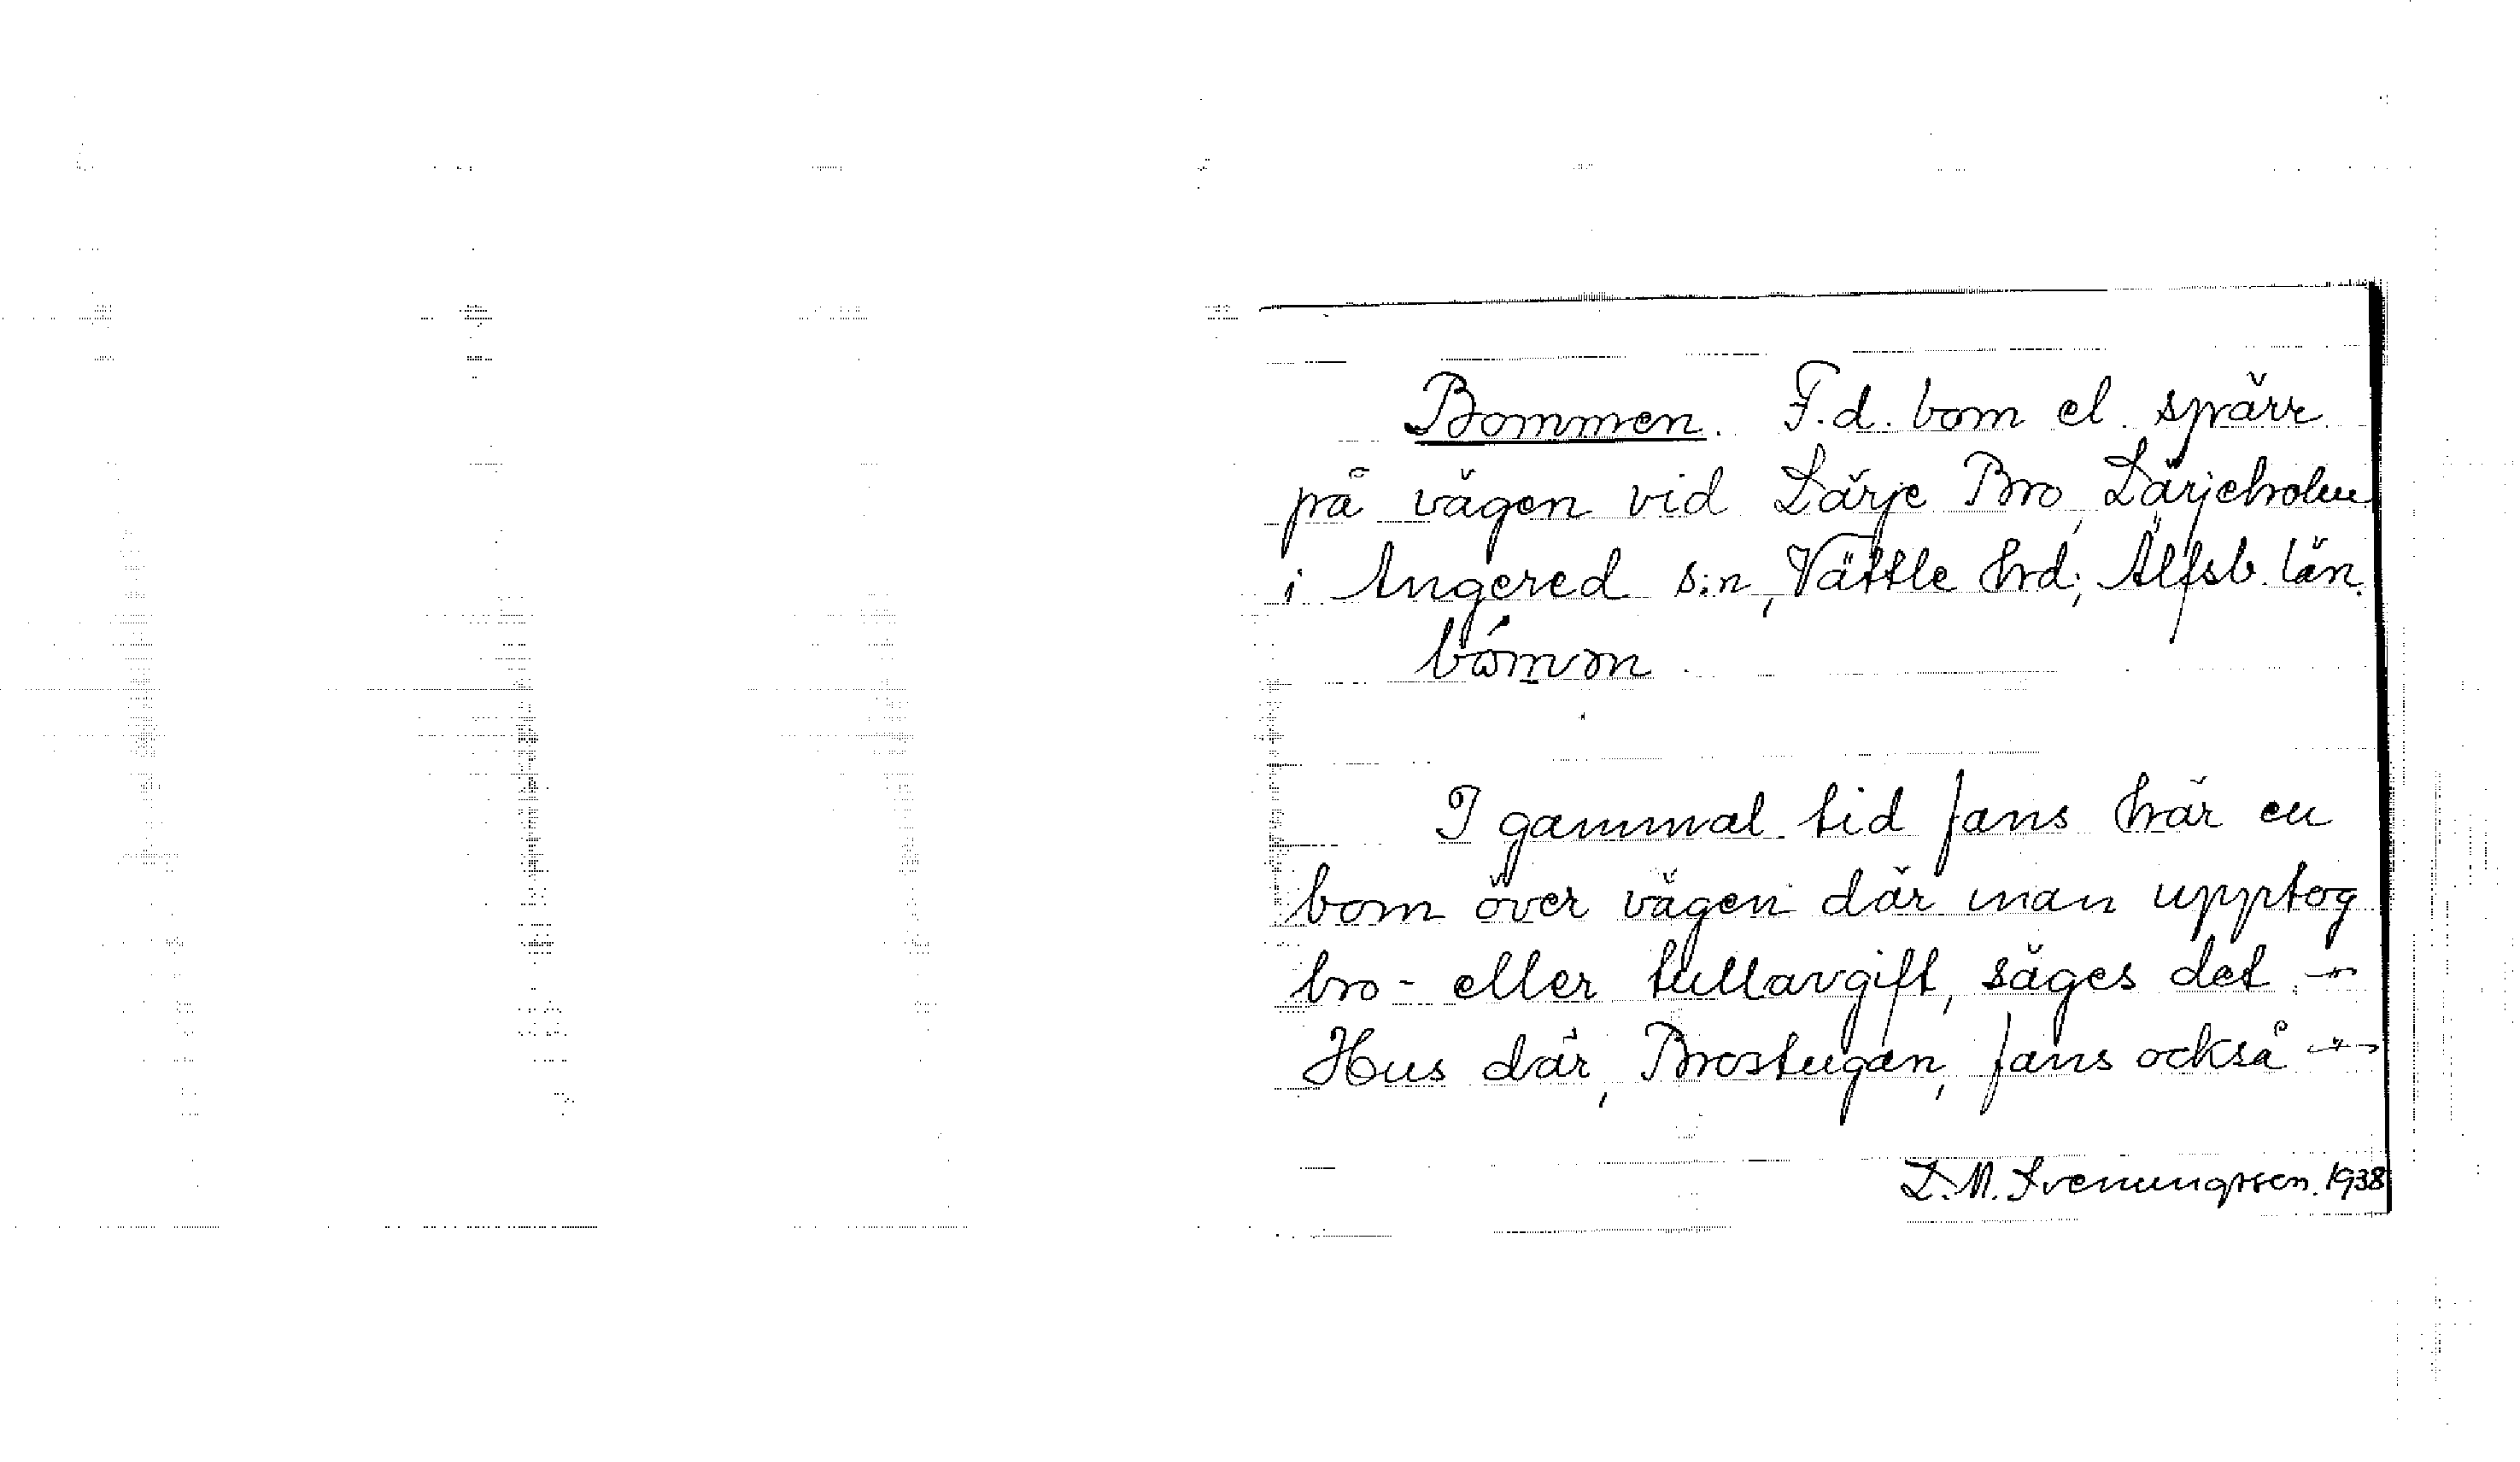 Bommen. F.d. bom el. spärr
på vägen vid Lärje Bro, Lärjeholm
i Angered s:n, Vättle hrd; Älfsb. län.
I gammal tid fans här en
bom över vägen där man upptog
bro- eller tullavgift, säges det. —
Hus där, Brostugan, fans också —
L. M. Svenungsson. 1938